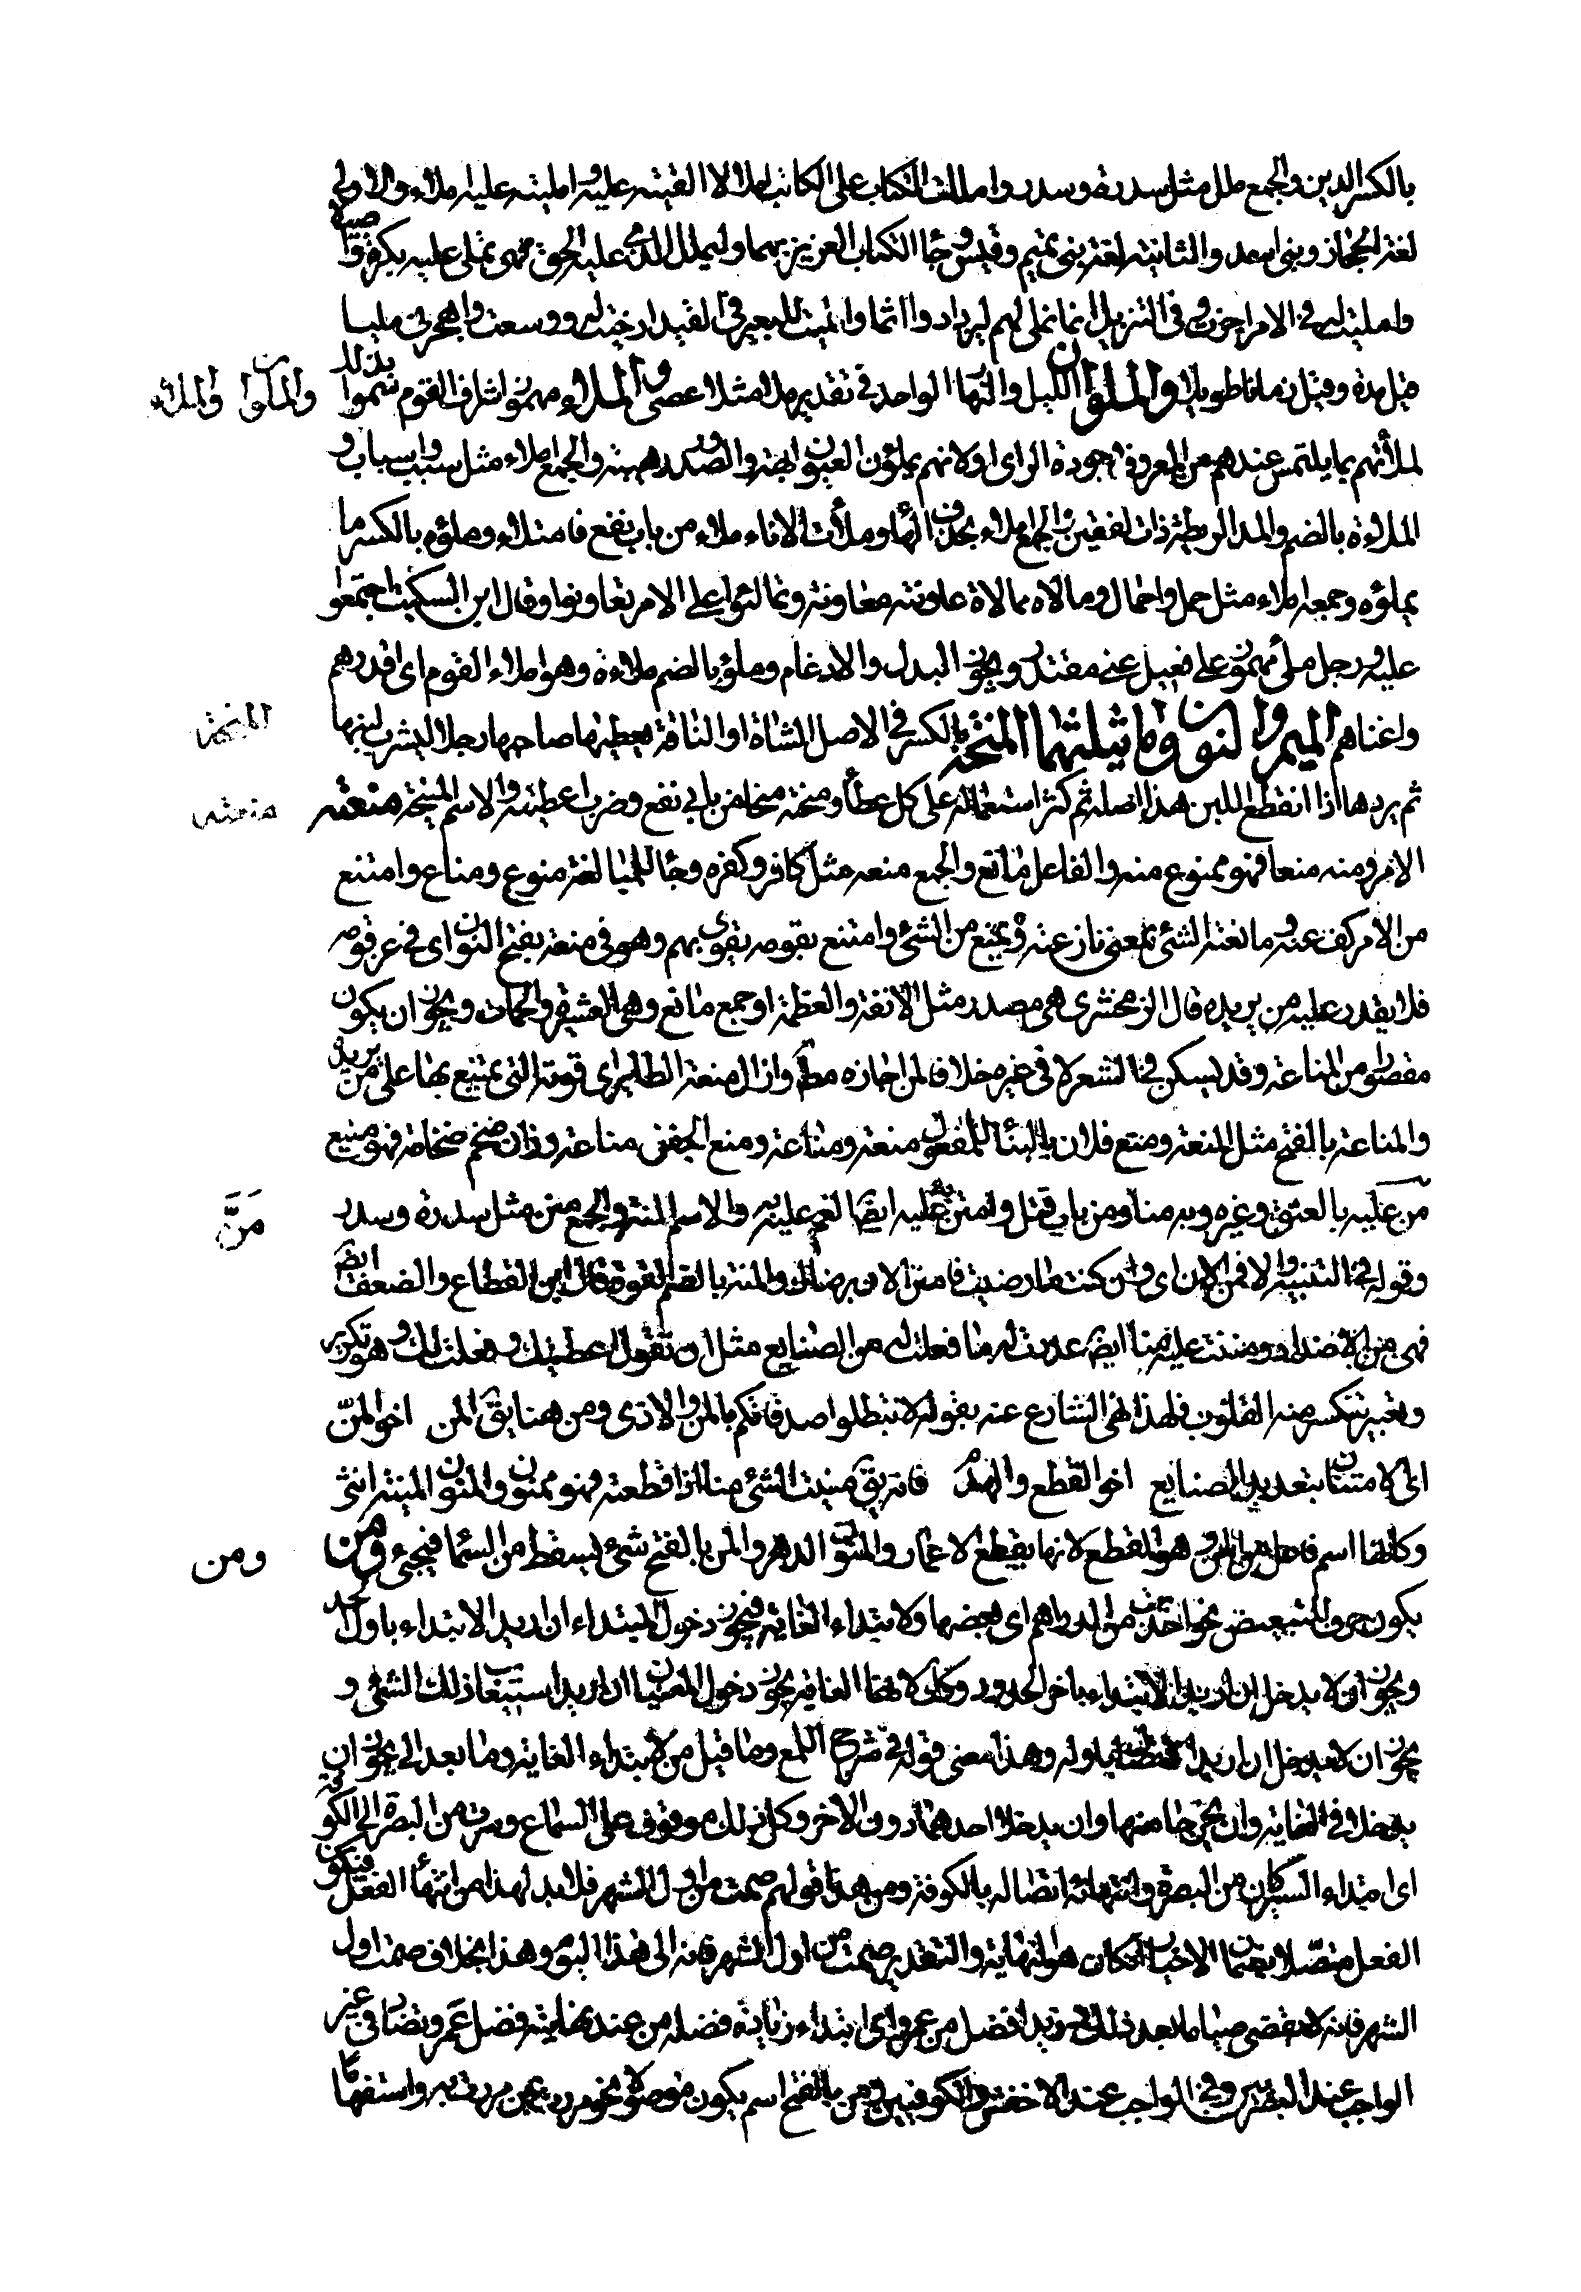 بالكسر الدين والجمع ملل مثل سدرة وسدر واملت الكتاب على الكاتب املالا القيته عليه وامليته عليه املاء والاولى
لغة الحجاز وبنى اسد والثانية لغة بنى تميم وقيس وجأ الكتاب العزيز بهما وليملل الذى عليه الحق فهى تملى عليه بكرة واصيلا
وامليت له فى الامر اخرت وفى التنزيل انما نملى لهم ليزدادوا اثما وامليت للبعير فى القيد ارخيت له ووسعت واهجرنى مليا
قيل مدة وقيل زمانا طويلا والملوان الليل والنهار الواحد فى تقدير ملا مثل عصى والملاء مهموز اشراف القوم سموا بذلك
والملوان والملاء
لملأتهم بما يلتمس عندهم من المعروف وجودة الراى او لانهم يملؤن العيون ابهة والصدور هيبة والجمع املاء مثل سبب واسباب و
الملاءة بالضم والمد الريطة ذات لفقين والجمع ملاء بحذف الهاء وملأت الاناء ملاء من باب نفع فامتلاء وملؤه بالكسر ما
يملؤه وجمعه املاء مثل حمل واحمال ومالاه ممالاة عاونه معاونة وتمالئوا على الامر تعاونوا وقال ابن السكيت اجتمعوا
عليه ورجل ملئ مهموز على فعيل غنى مقتدر ويجوز البدل والادغام وملؤ بالضم ملاءة وهو املاء القوم اى اقدرهم
واغناهم الميم والنون وما يثلثهما المنحة بالكسر فى الاصل الشاة او الناقة يعطيها صاحبها رجلا ليشرب لبنها
المنحة
ثم يردها اذا انقطع اللبن هذا اصله ثم كثر استعماله على كل عطأ ومنحته منحا من بابى نفع وضرب اعطيته والاسم المنيحة منعته
منعته
الامر ومنه منعا فهو ممنوع منه والفاعل مانع والجمع منعه مثل كافر وكفره وجأ للمبالغة منوع ومناع وامتنع
من الامر كف عنه ومانعته الشئ بمعنى نازعته وتمنع من الشئ وامتنع بقومه تقوى بهم وهو فى منعة بفتح النون اى فى عز قومه
فلا يقدر عليه من يريده قال الزمخشرى هى مصدر مثل الانفة والعظمة او جمع مانع وهى العشيرة والحماة ويجوز ان يكون
مقصورا من المناعة وقد يسكن فى الشعر لا فى غيره خلافا لمن اجازه مط وازال منعة الطاير اى قوته التى يمتنع بها على من يريده
والمناعة بالفتح مثل المنعة ومنع فلان بالبنأ للمفعول منعة ومناعة ومنع الحصن مناعة وزان ضخم ضخامة فهو منيع
من عليه بالعتق وغيره وبه منا ومن باب قتل وامتن عليه به ايضا انعم عليه به والاسم المنة والجمع منن مثل سدرة وسدر
مَنَّ
وقوله فى التنبيه والا فمن الان اى وان كنت ما رضيت فامنن الان برضاك والمنة بالضم القوة قال ابن القطاع والضعف ايضا
فهى من الاضداد ومننت عليه منا ايضا عددت له ما فعلت له من الصنايع مثل ان تقول اعطيتك وفعلت لك وهو تكرير
وتعيير تنكسر منه القلوب فلهذا نهى الشارع عنه بقوله لا تبطلوا صدقاتكم بالمن والاذى ومن هنا يق المن اخو المنّ
اى الامتنان بتعديد الصنايع اخو القطع والهدم فانه يق مننت الشئ منا اذا قطعته فهو ممنون والمنون المنية انثى
وكانها اسم فاعل من المن وهو القطع لانها تقطع الاعمار والمنون الدهر والمن بالفتح شئ يسقط من السما فيجئ ومن
ومن
يكون حرف للتبعيض نحو اخذت من الدراهم اى بعضها ولابتداء الغاية فيجوز دخول المبتداء ان اريد الابتداء باول الحد
ويجوز ان لا يدخل ان اريد الابتداء باخر الحدود وكان لانتهأ الغاية يجوز دخول المغيا ان اريد استيعاب ذلك الشئ و
يجوز ان لا يدخل ان اريد اوله وهذا معنى قوله فى شرح اللمع وما قبل من لابتداء الغاية وما بعد الى يجوز ان
يدخلا فى الغاية وان يخرجا منها وان يدخل احدهما دون الاخر وكل ذلك موقوف على السماع وسرت من البصرة الى الكوفة
اى ابتداء السير كان من البصرة وانتهائه اتصاله بالكوفة ومن هذا قولهم صمت من اول الشهر فلا بد لهذا من انتهأ الفعل فيكون
الفعل متصلا الاخبار كان هو النهاية والتقدير صمت من اول الشهر فانه الى هذا اليوم وهذا بخلاف صمت اول
الشهر فانه لا يقتضى صياما بعد ذلك وزيد افضل من عمرو اى ابتداء زيادة فضله من عند نهاية فضل عمرو وتضاف فى غير
الواجب عند البصريين وفى الواجب عند الاخفش والكوفيين ومن بالفتح اسم يكون موصولا نحو مررت بمن مررت به واستفهاما